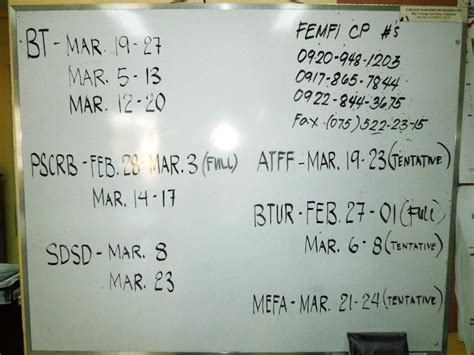 BT - MAR. 19-27
MAR. 5-13
MAR. 12-20
PSCRB - FEB. 28 - MAR. 3 (FULL)
MAR. 14-17
SDSD - MAR. 8
MAR. 23
FEMFI CP #'s
0920-948-1203
0917-865-7844
0922-844-3675
Fax (075) 522-23-15
ATFF - MAR. 19-23 (TENTATIVE)
BTUR - FEB. 27 - 01 (FULL)
MAR. 6-8 (TENTATIVE)
MEFA - MAR. 21-24 (TENTATIVE)